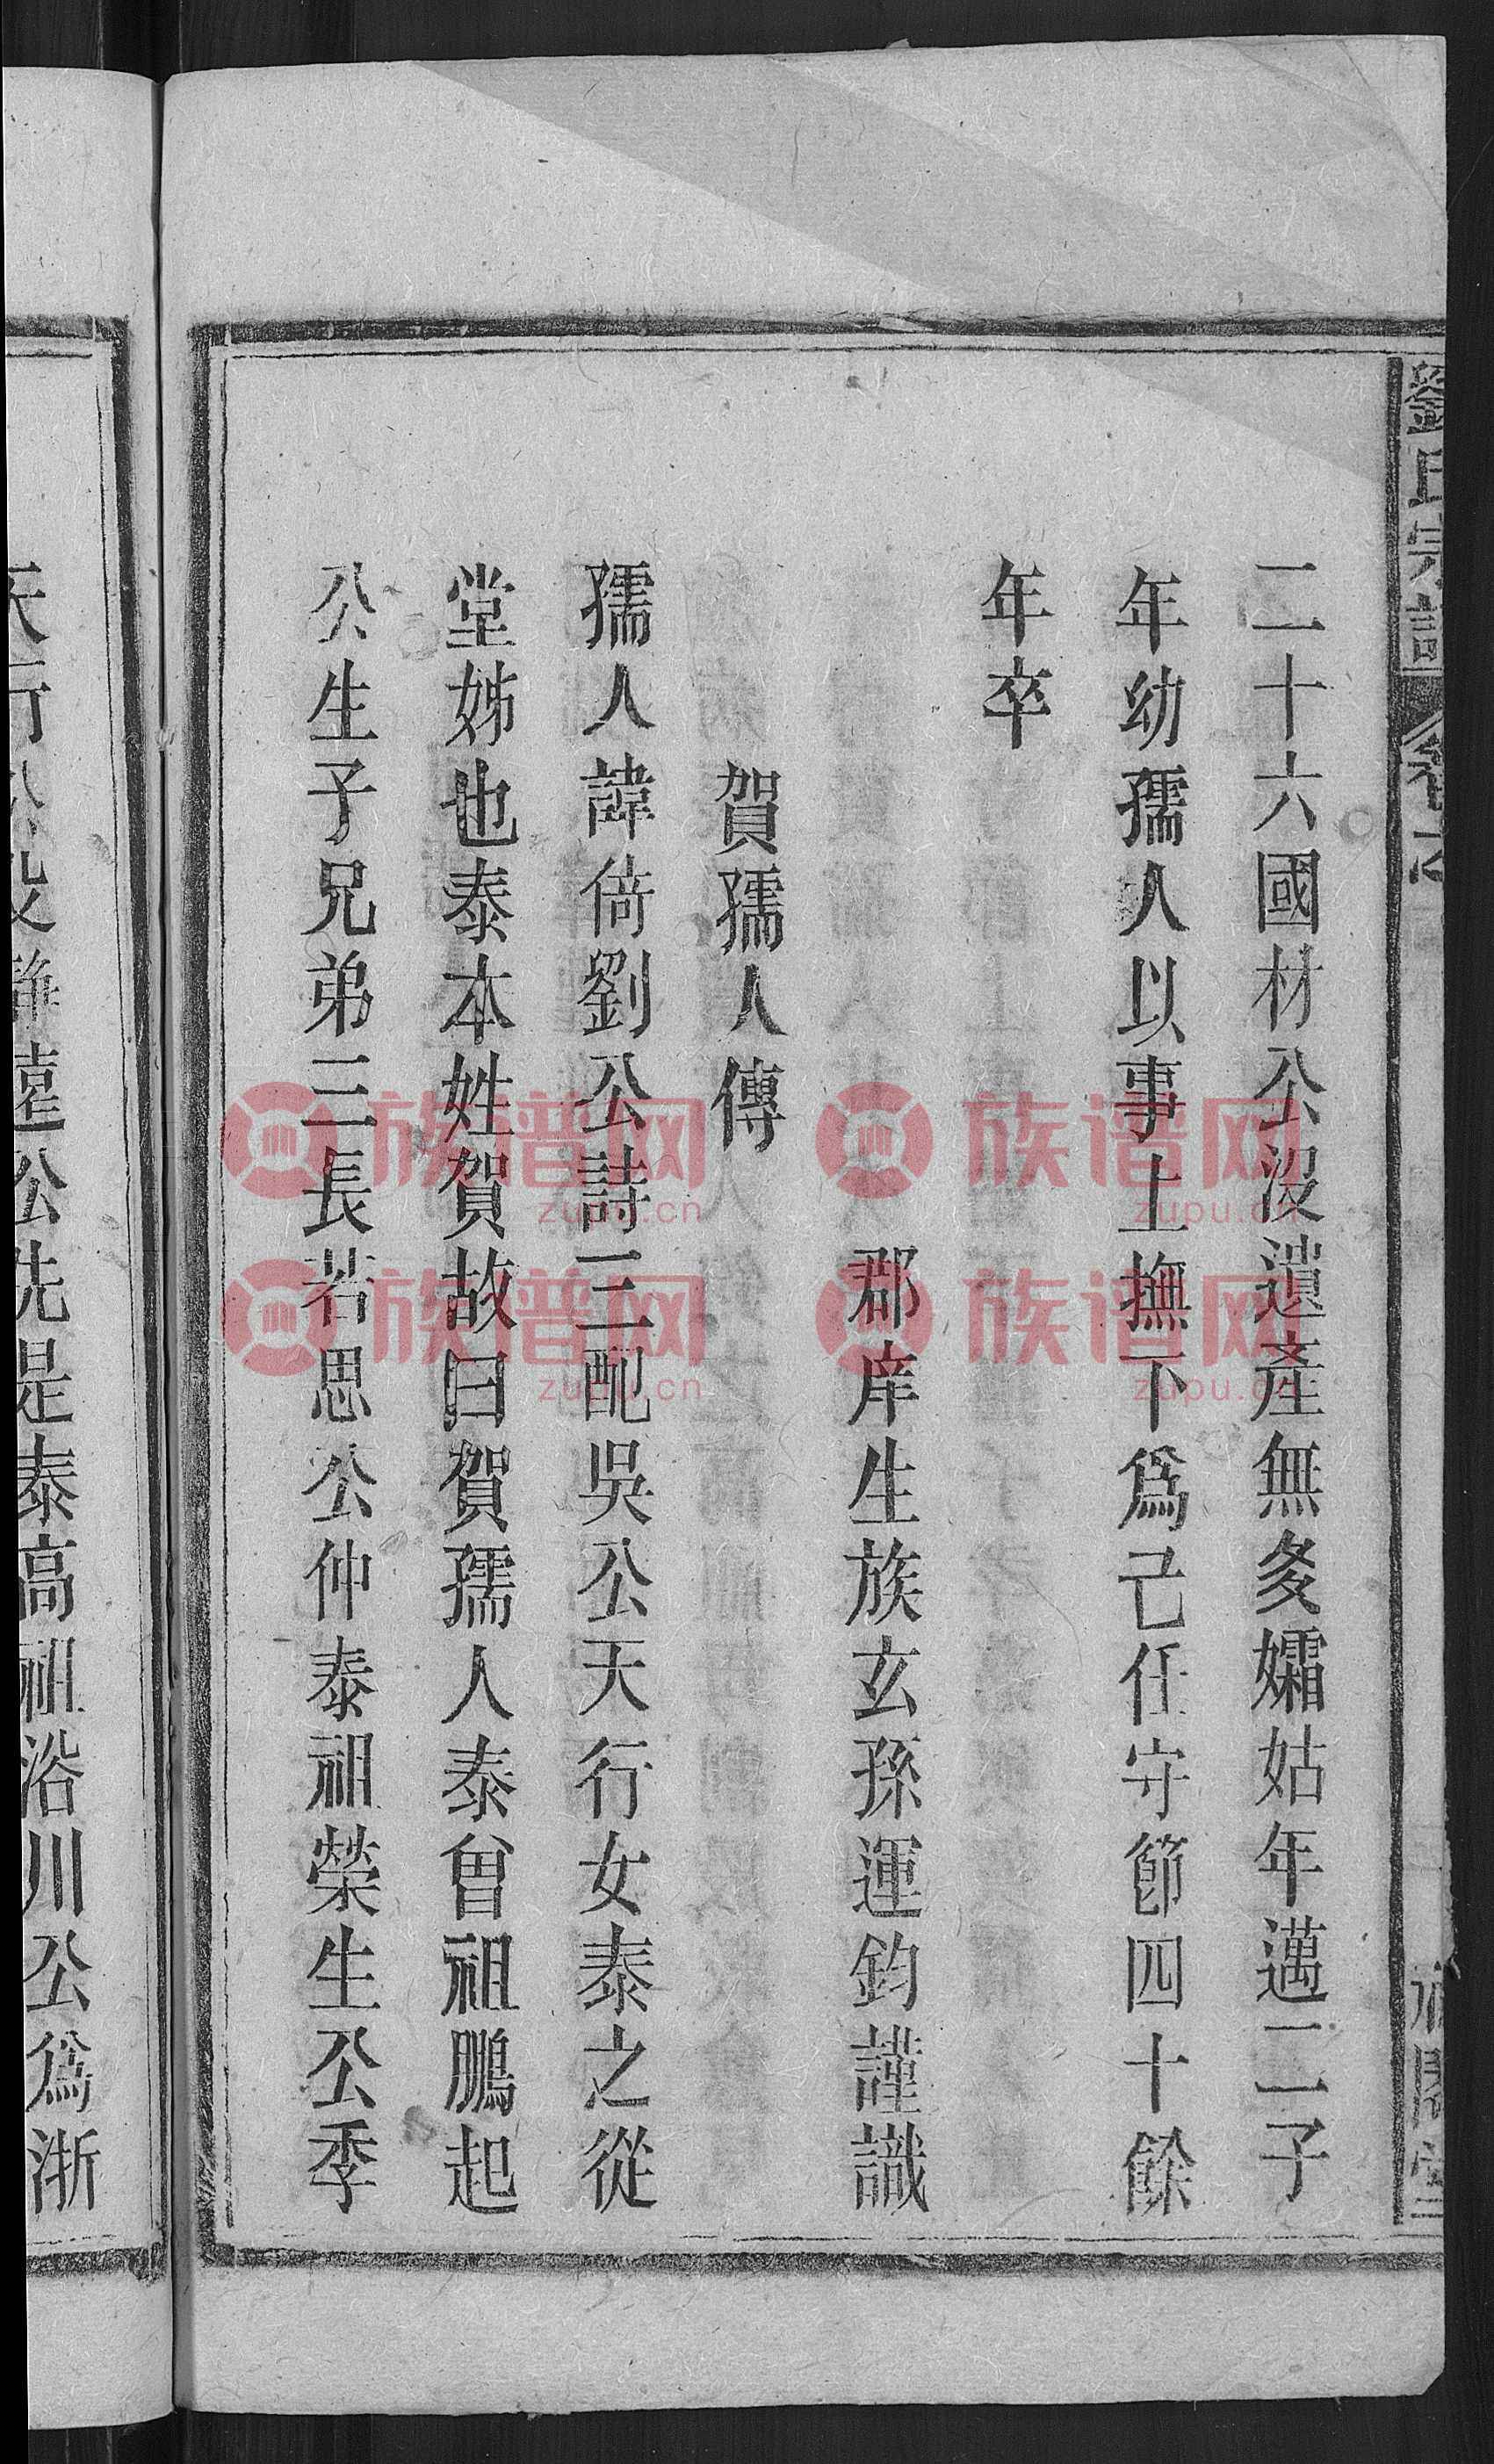 劉氏宗譜 卷六
二十六國材公沒遺產無多孀姑年邁二子
年幼孺人以事上撫下爲己任守節四十餘
年卒
郡庠生族玄孫運鈞謹識
賀孺人傳
孺人諱倚劉公詩三配吳公天行女泰之從
堂姊也泰本姓賀故曰賀孺人泰曾祖鵬起
公生子兄弟三長若思公仲泰祖榮生公季
天行公父靜薳公先是泰高祖浴川公爲浙
族谱网
zupu.cn
族谱网
zupu.cn
族谱网
zupu.cn
族谱网
zupu.cn